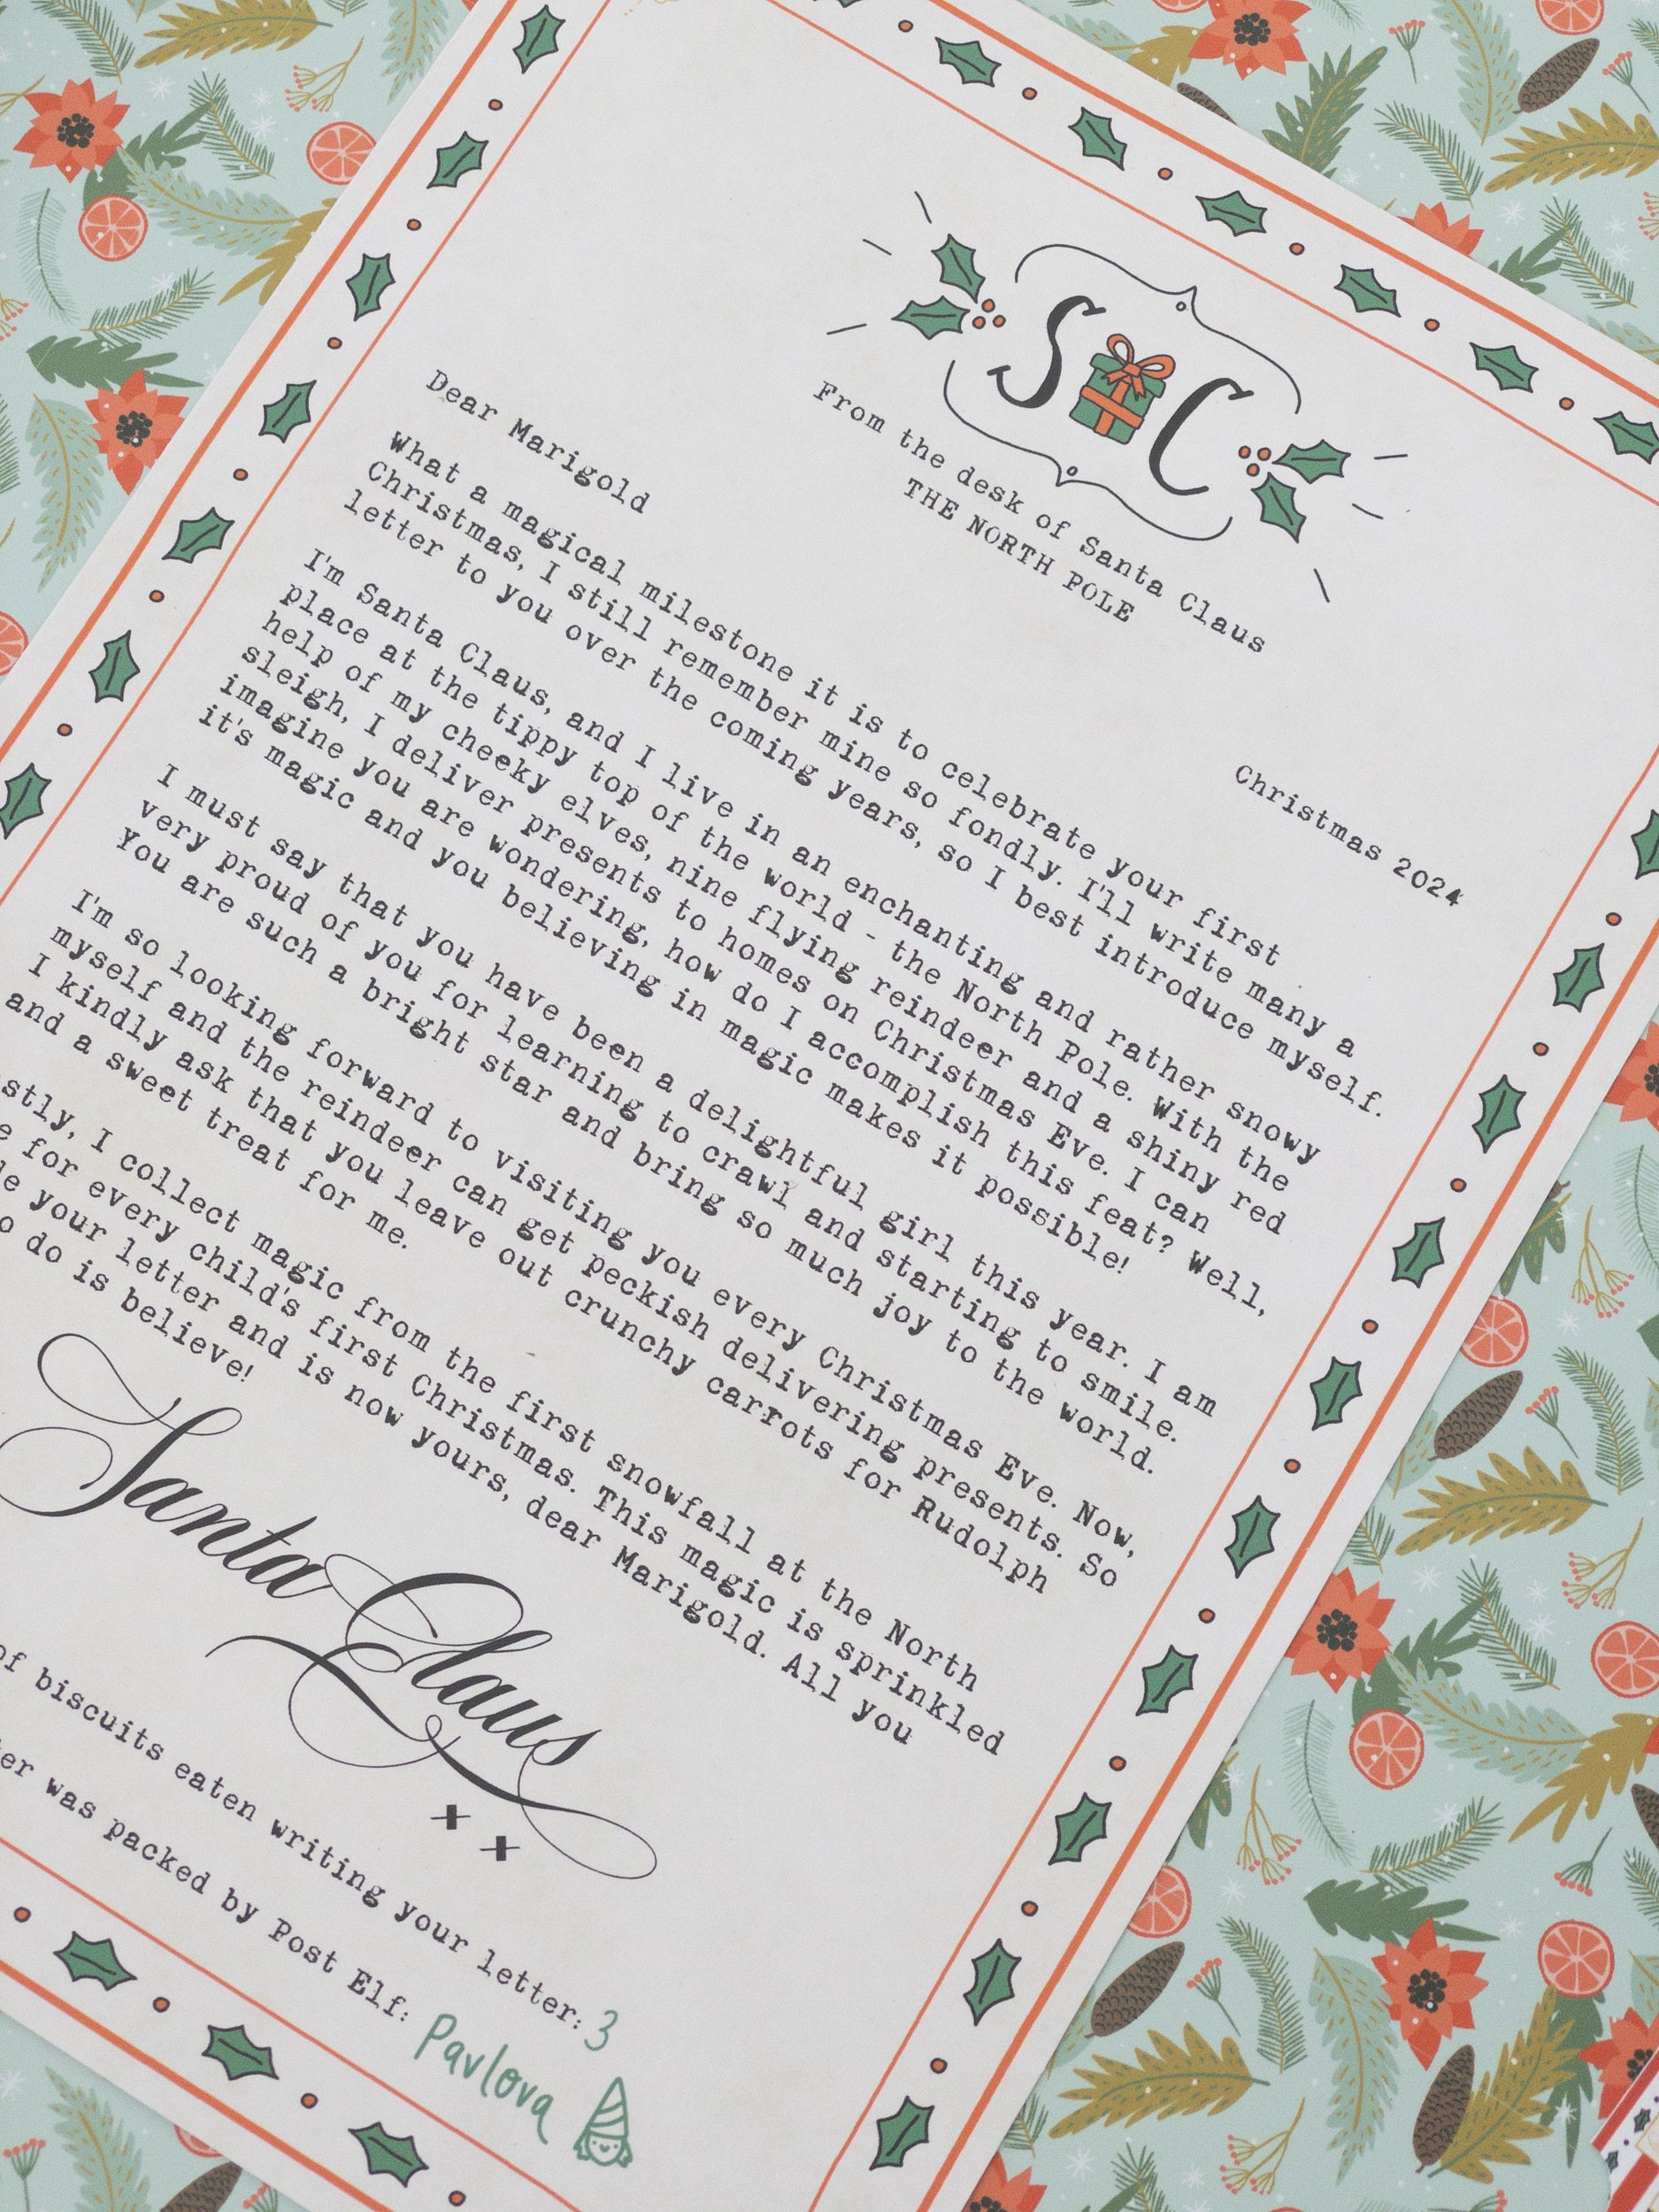 S C
From the desk of Santa Claus
THE NORTH POLE
Christmas 2024
Dear Marigold
What a magical milestone it is to celebrate your first
Christmas, I still remember mine so fondly. I'll write many a
letter to you over the coming years, so I best introduce myself.
I'm Santa Claus, and I live in an enchanting and rather snowy
place at the tippy top of the world - the North Pole. With the
help of my cheeky elves, nine flying reindeer and a shiny red
sleigh, I deliver presents to homes on Christmas Eve. I can
imagine you are wondering, how do I accomplish this feat? Well,
it's magic and you believing in magic makes it possible!
I must say that you have been a delightful girl this year. I am
very proud of you for learning to crawl and starting to smile.
You are such a bright star and bring so much joy to the world.
I'm so looking forward to visiting you every Christmas Eve. Now,
myself and the reindeer can get peckish delivering presents. So
I kindly ask that you leave out crunchy carrots for Rudolph
and a sweet treat for me.
stly, I collect magic from the first snowfall at the North
e for every child's first Christmas. This magic is sprinkled
de your letter and is now yours, dear Marigold. All you
o do is believe!
Santa Claus
x x
of biscuits eaten writing your letter: 3
er was packed by Post Elf: Pavlova